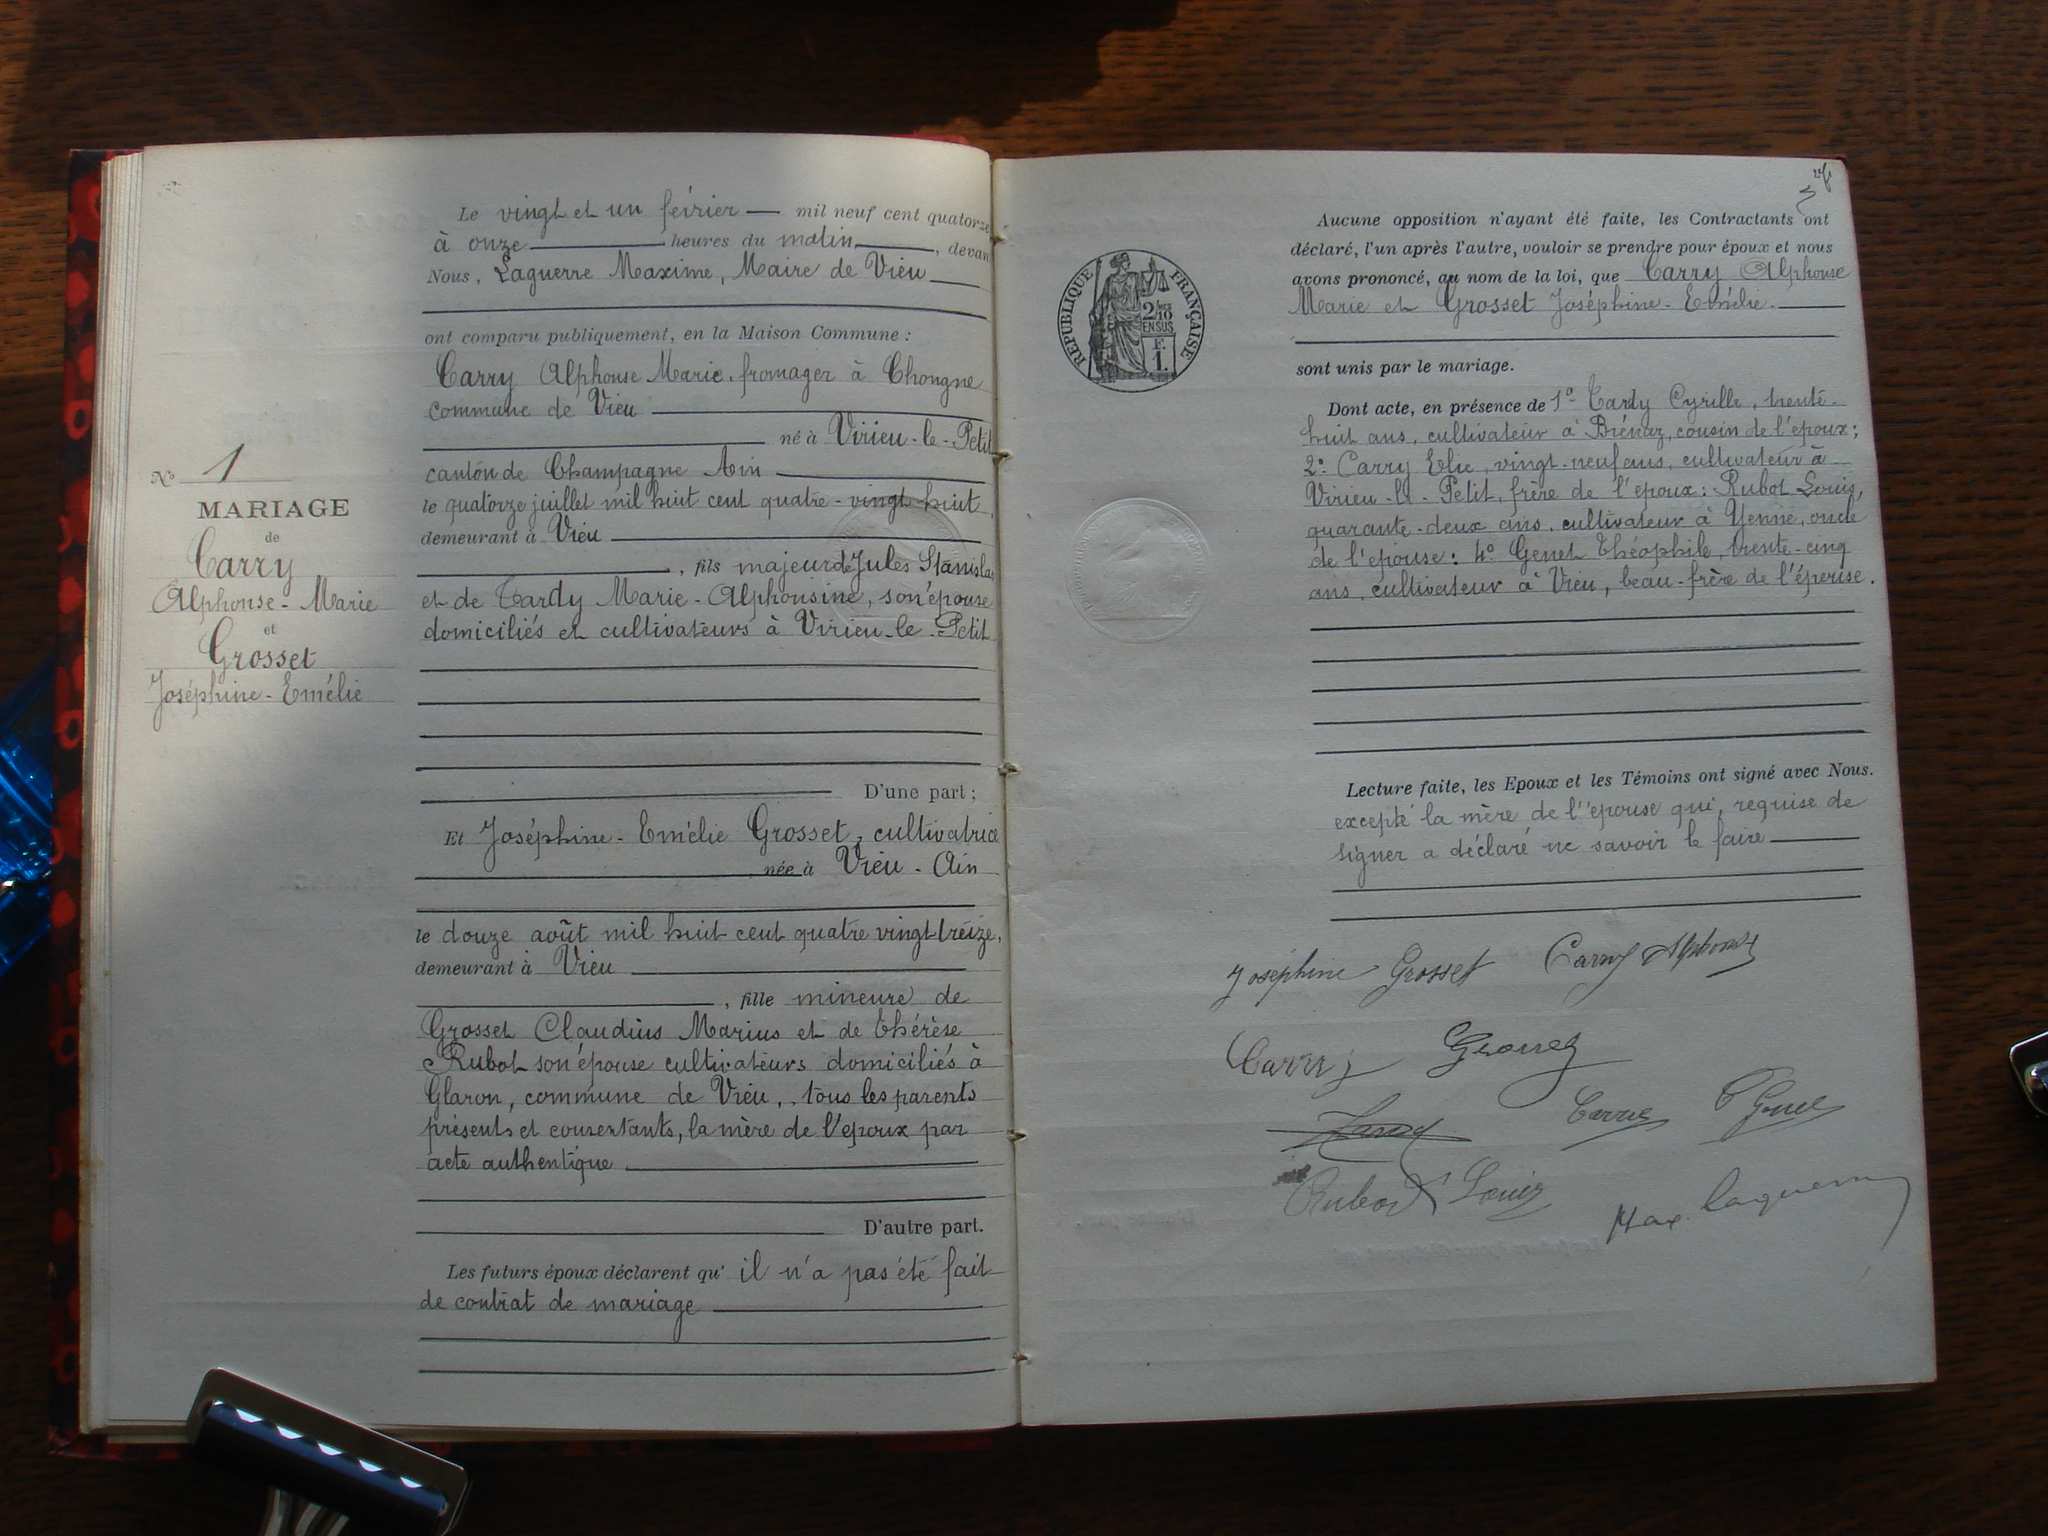 Le vingt et un février mil neuf cent quatorze
à onze heures du matin, devant
Nous, Laguerre Maxime, Maire de Vieu
ont comparu publiquement, en la Maison Commune :
Carry Alphonse Marie, fromager à Chongne
commune de Vieu
né à Virieu-le-Petit
canton de Champagne Ain
le quatorze juillet mil huit cent quatre-vingt huit,
demeurant à Vieu
, fils majeur de Jules Stanislas
et de Tardy Marie-Alphonsine, son épouse
domiciliés et cultivateurs à Virieu-le-Petit
No 1
MARIAGE
de
Carry
Alphonse-Marie
et
Grosset
Joséphine-Emélie
D'une part ;
Et Joséphine-Emélie Grosset, cultivatrice
née à Vieu-Ain
le douze août mil huit cent quatre vingt treize,
demeurant à Vieu
, fille mineure de
Grosset Claudius Marius et de Thérèse
Rubot son épouse cultivateurs domiciliés à
Glaron, commune de Vieu, tous les parents
présents et consentants, la mère de l'epoux par
acte authentique
D'autre part.
Les futurs époux déclarent qu'il n'a pas été fait
de contrat de mariage
RÉPUBLIQUE FRANÇAISE
2/10
EN SUS
F.
1.
Aucune opposition n'ayant été faite, les Contractants ont
déclaré, l'un après l'autre, vouloir se prendre pour époux et nous
avons prononcé, au nom de la loi, que Carry Alphonse
Marie et Grosset Joséphine-Emélie.
sont unis par le mariage.
Dont acte, en présence de 1º Tardy Cyrille, trente-
huit ans, cultivateur à Brénaz, cousin de l'époux ;
2º Carry Elie, vingt-neuf ans, cultivateur à
Virieu-le-Petit, frère de l'epoux : Rubot Louis,
quarante-deux ans, cultivateur à Yenne, oncle
de l'epouse : 4º Genet Théophile, trente-cinq
ans, cultivateur à Vieu, beau-frère de l'épouse.
Lecture faite, les Epoux et les Témoins ont signé avec Nous.
excepté la mère de l'epouse qui, requise de
signer a déclaré ne savoir le faire
Joséphine Grosset Carry Alphonse
Carry Grosset
Tardy Carry T Genet
Rubod Louis
Max. Laguerre